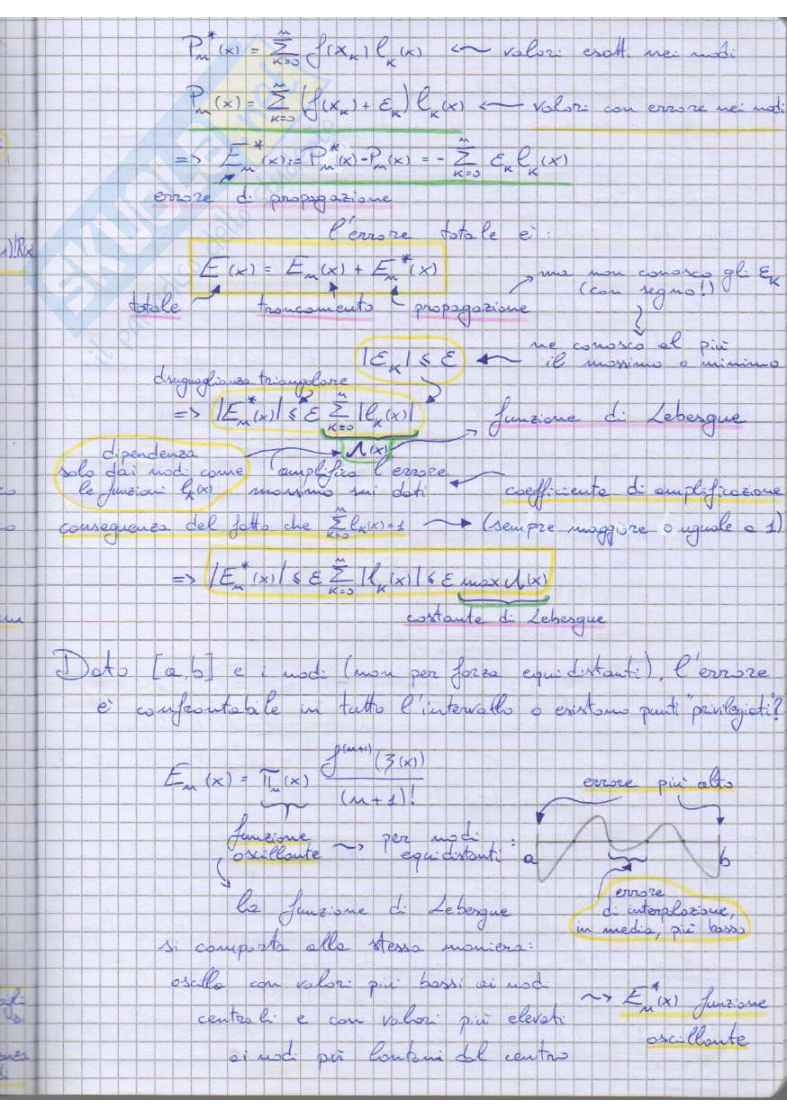 Pₙ*(x) = Σₖ₌₀ⁿ f(xₖ) ℓₖ(x) ← valori esatti nei nodi
Pₙ(x) = Σₖ₌₀ⁿ (f(xₖ) + εₖ) ℓₖ(x) ← valori con errore nei nodi
=> Eₙ*(x) := Pₙ*(x) - Pₙ(x) = - Σₖ₌₀ⁿ εₖ ℓₖ(x)
errore di propagazione
l'errore totale è:
E(x) = Eₙ(x) + Eₙ*(x)
ma non conosco gli εₖ
(con segno!)
totale troncamento propagazione
ne conosco al più
il massimo o minimo
|εₖ| ≤ ε
disuguaglianza triangolare
=> |Eₙ*(x)| ≤ ε Σₖ₌₀ⁿ |ℓₖ(x)| funzione di Lebesgue
Λ(x)
dipendenza
solo dai nodi come
le funzioni ℓₖ(x)
amplifica l'errore
massimo sui dati
coefficiente di amplificazione
conseguenza del fatto che Σₖ₌₀ⁿ ℓₖ(x)=1 → (sempre maggiore o uguale a 1)
=> |Eₙ*(x)| ≤ ε Σₖ₌₀ⁿ |ℓₖ(x)| ≤ ε max Λ(x)
costante di Lebesgue
Dato [a,b] e i nodi (non per forza equidistanti), l'errore
è confrontabile in tutto l'intervallo o esistono punti "privilegiati"?
Eₙ(x) = πₙ(x) f⁽ⁿ⁺¹⁾(ξ(x)) / (n+1)!
errore più alto
funzione
oscillante
per nodi
equidistanti:
a b
errore
di interpolazione,
in media, più basso
la funzione di Lebesgue
si comporta alla stessa maniera:
oscilla con valori più bassi ai nodi
centrali e con valori più elevati
ai nodi più lontani dal centro
Eₙ*(x) funzione
oscillante
SKUOLA.net